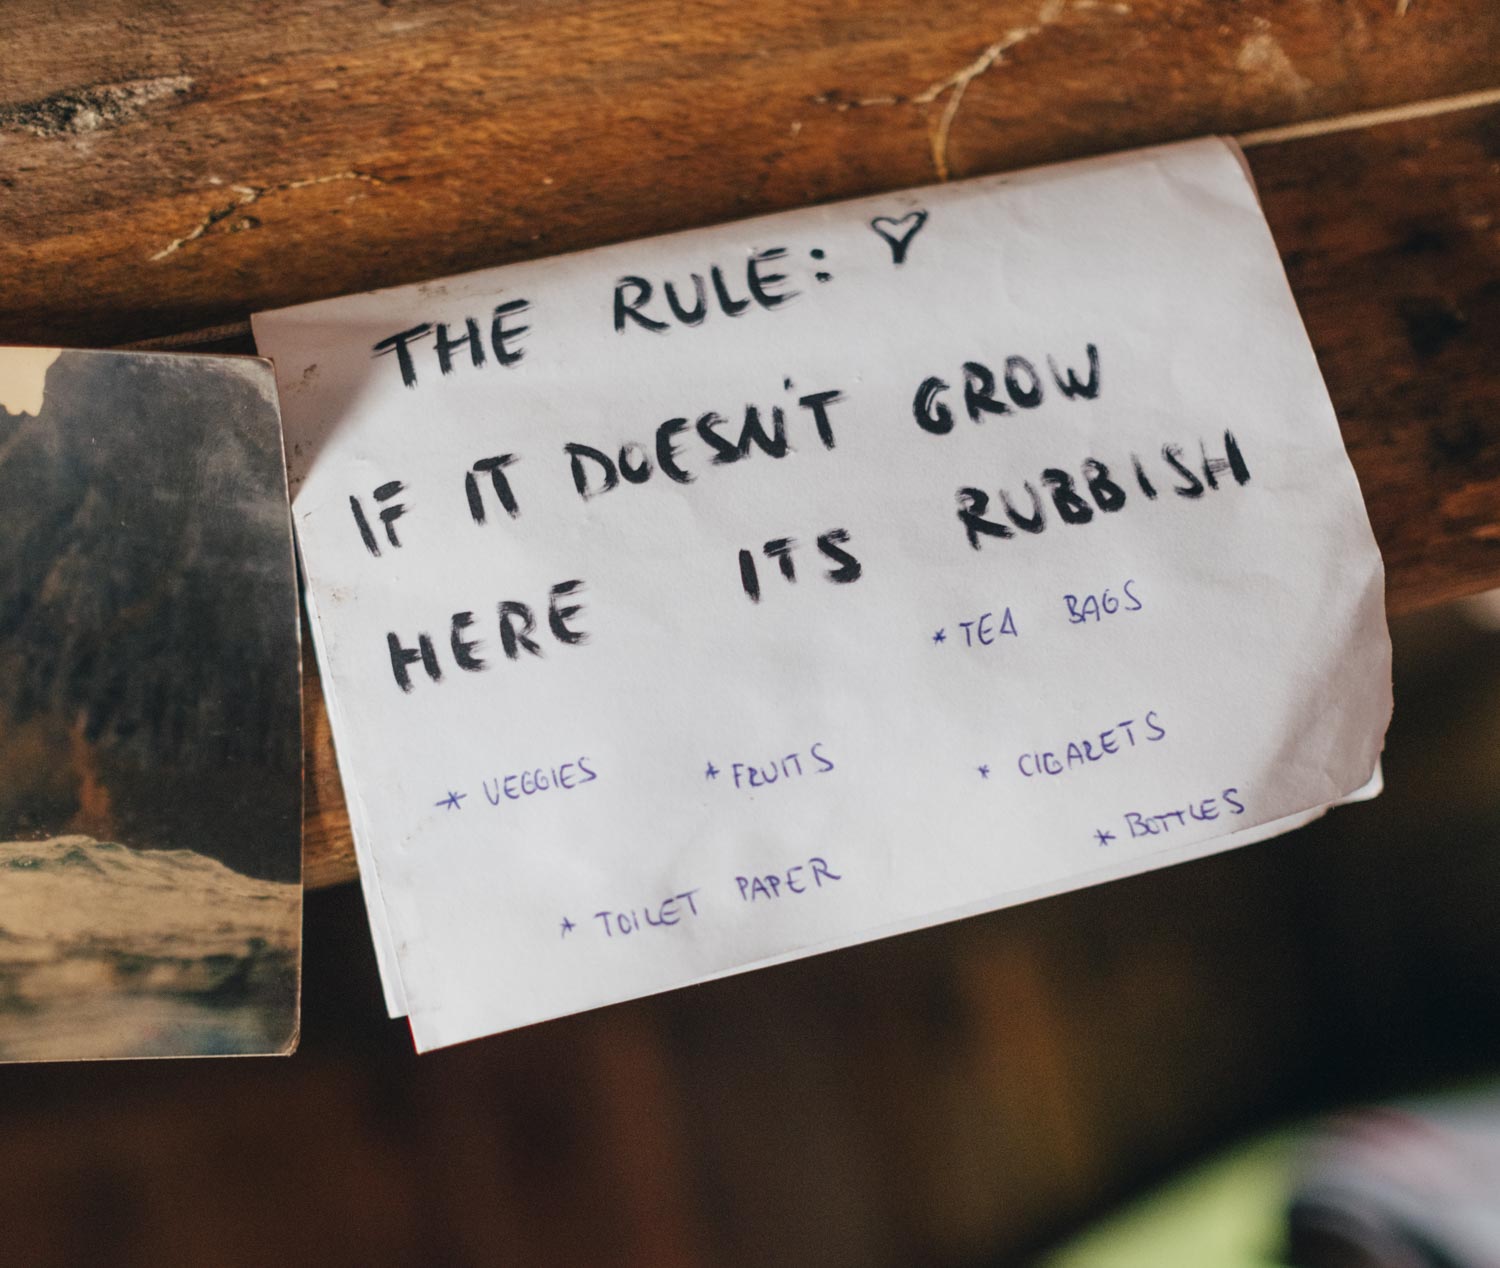 THE RULE: ♡
IF IT DOESN'T GROW
HERE ITS RUBBISH
* TEA BAGS
* VEGGIES * FRUITS * CIGARETS
* BOTTLES
* TOILET PAPER